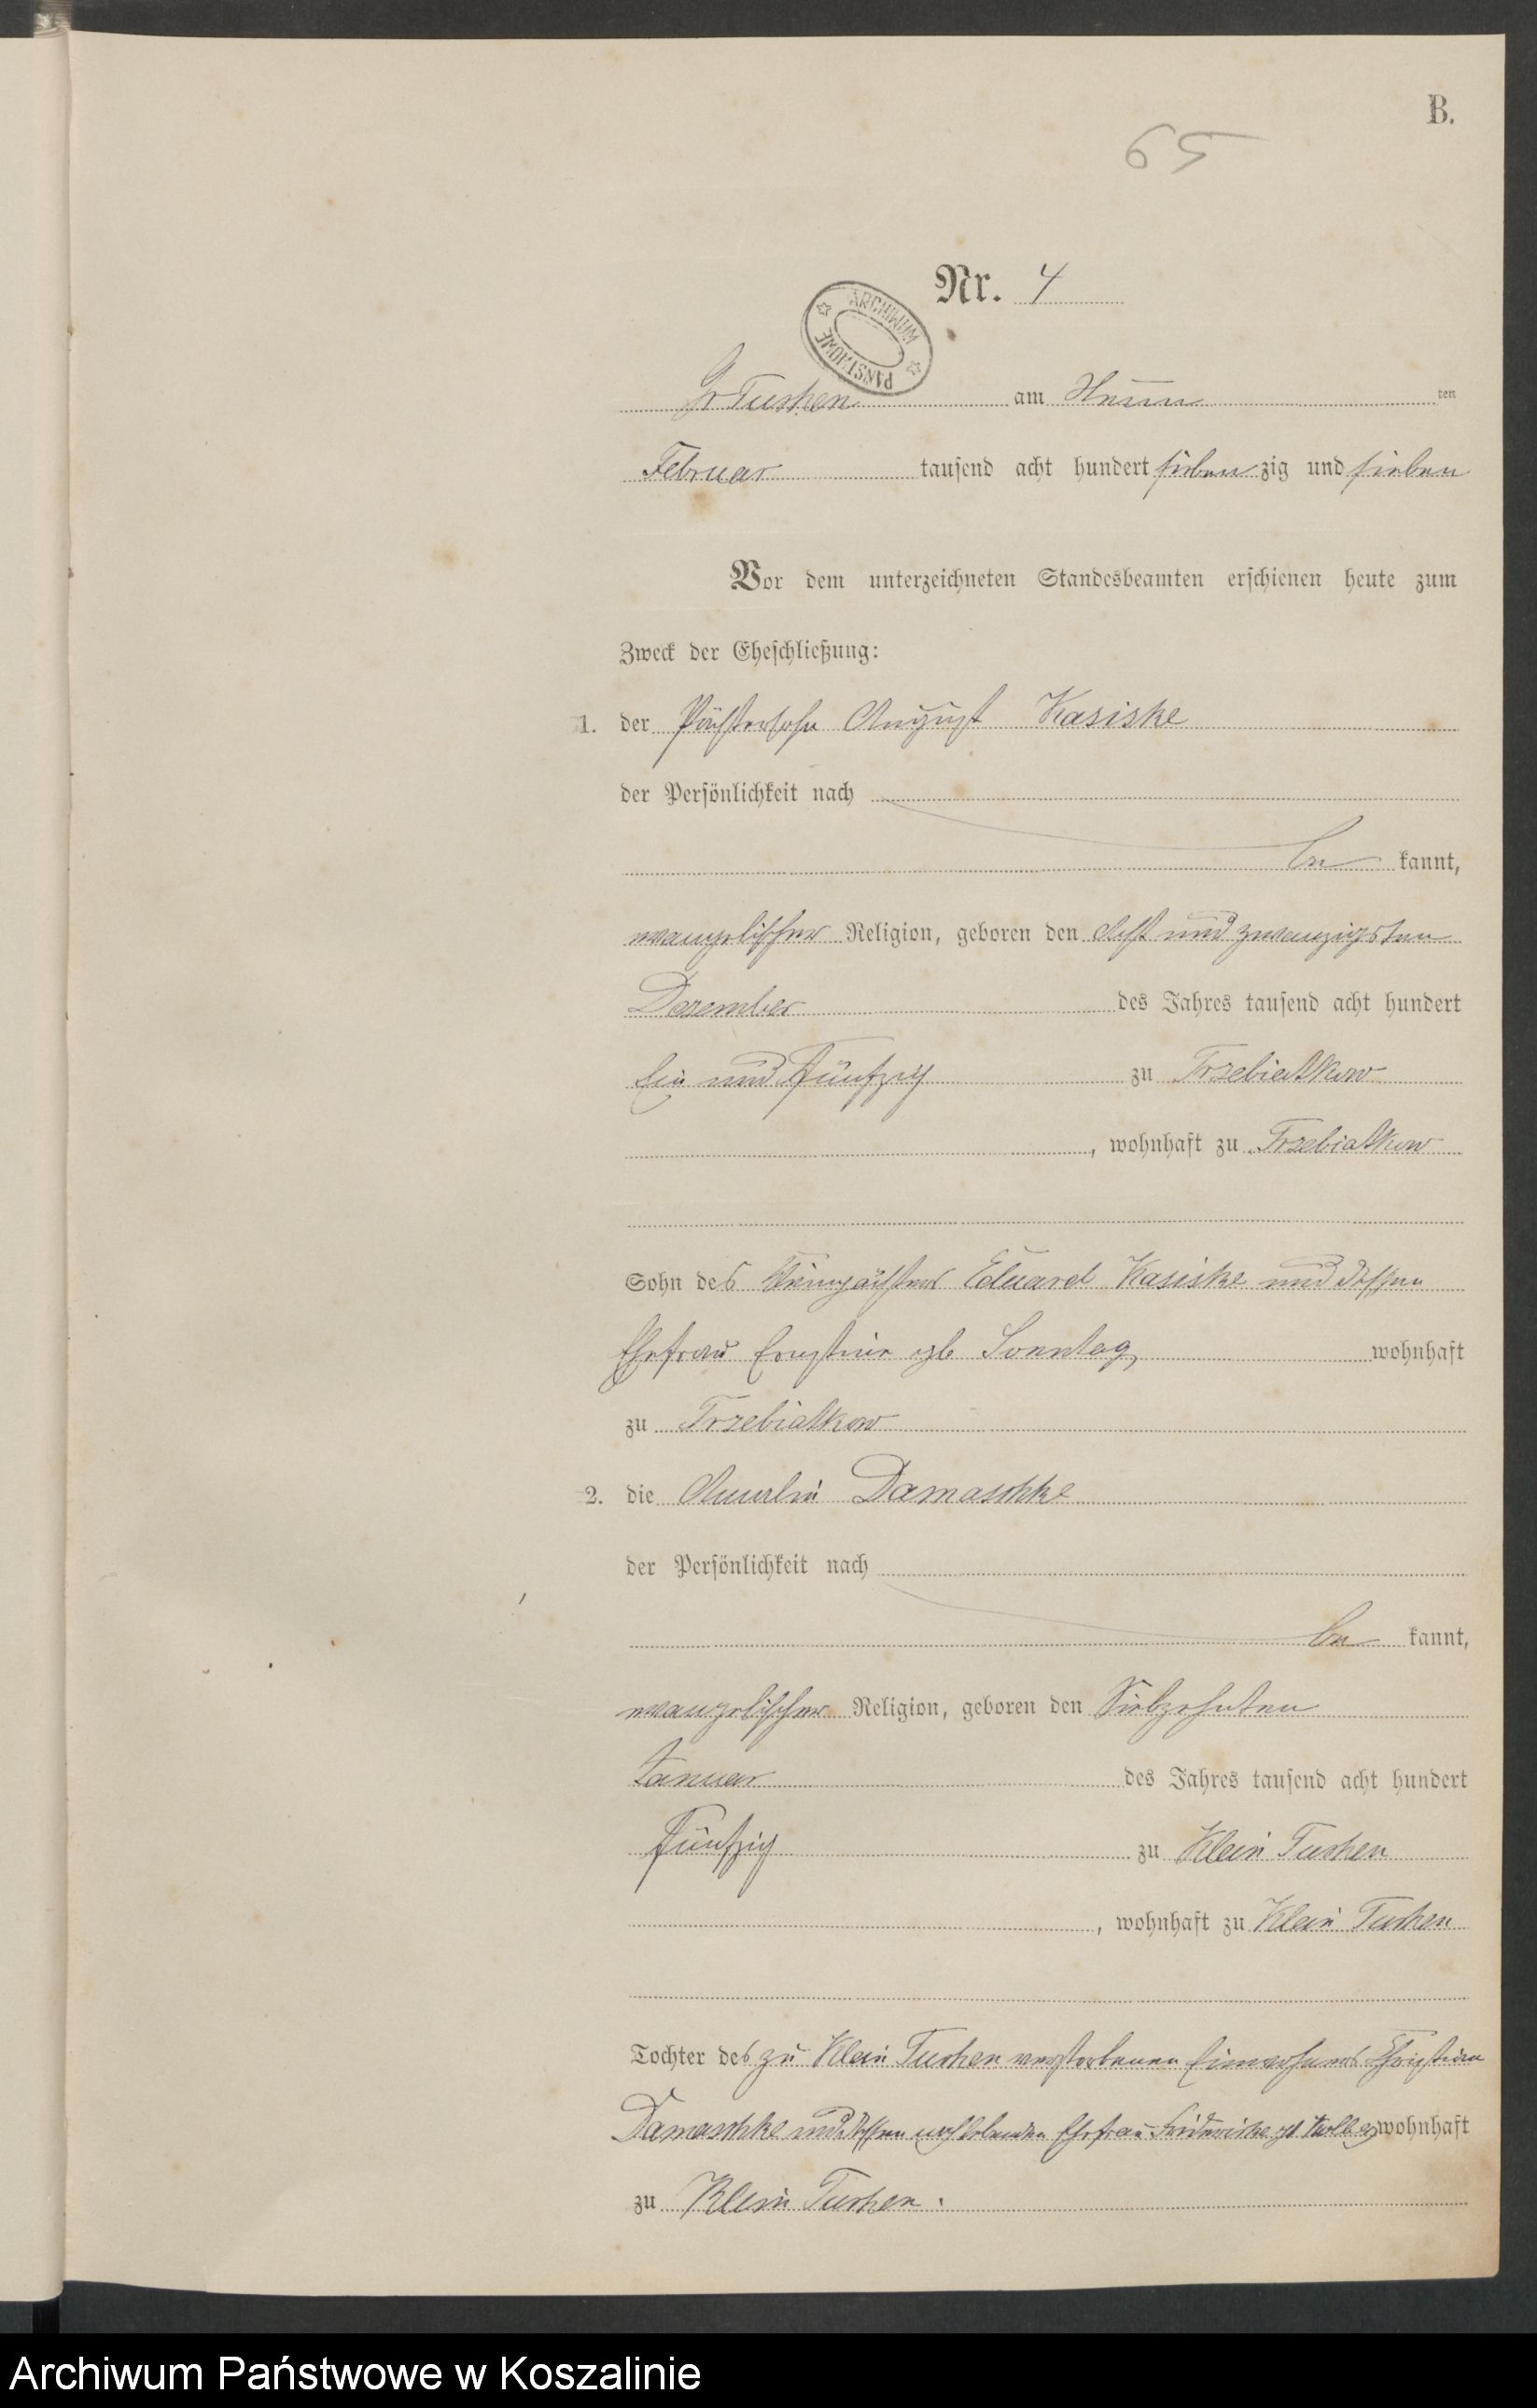 B.
65
Nr. 4
ARCHIWUM PAŃSTWOWE
Gr Tuchen am Neun ten
Februar tausend acht hundert sieben zig und sieben
Vor dem unterzeichneten Standesbeamten erschienen heute zum
Zweck der Eheschließung:
1. der Pächtersohn August Kasiske
der Persönlichkeit nach
be kannt,
evangelischer Religion, geboren den Acht und zwanzigsten
Dezember des Jahres tausend acht hundert
Ein und Fünfzig zu Trzebiatkow
, wohnhaft zu Trzebiatkow
Sohn des Eduard Kasiske und dessen
Ehefrau Ernstine geb Sonntag, wohnhaft
zu Trzebiatkow
2. die Amalie Damaschke
der Persönlichkeit nach
be kannt,
evangelischer Religion, geboren den Siebzehnten
Januar des Jahres tausend acht hundert
Fünfzig zu Klein Tuchen
, wohnhaft zu Klein Tuchen
Tochter des zu Klein Tuchen verstorbenen Einwohners Christian
Damaschke und dessen noch lebenden Ehefrau Friderike geb wohnhaft
zu Klein Tuchen.
Archiwum Państwowe w Koszalinie